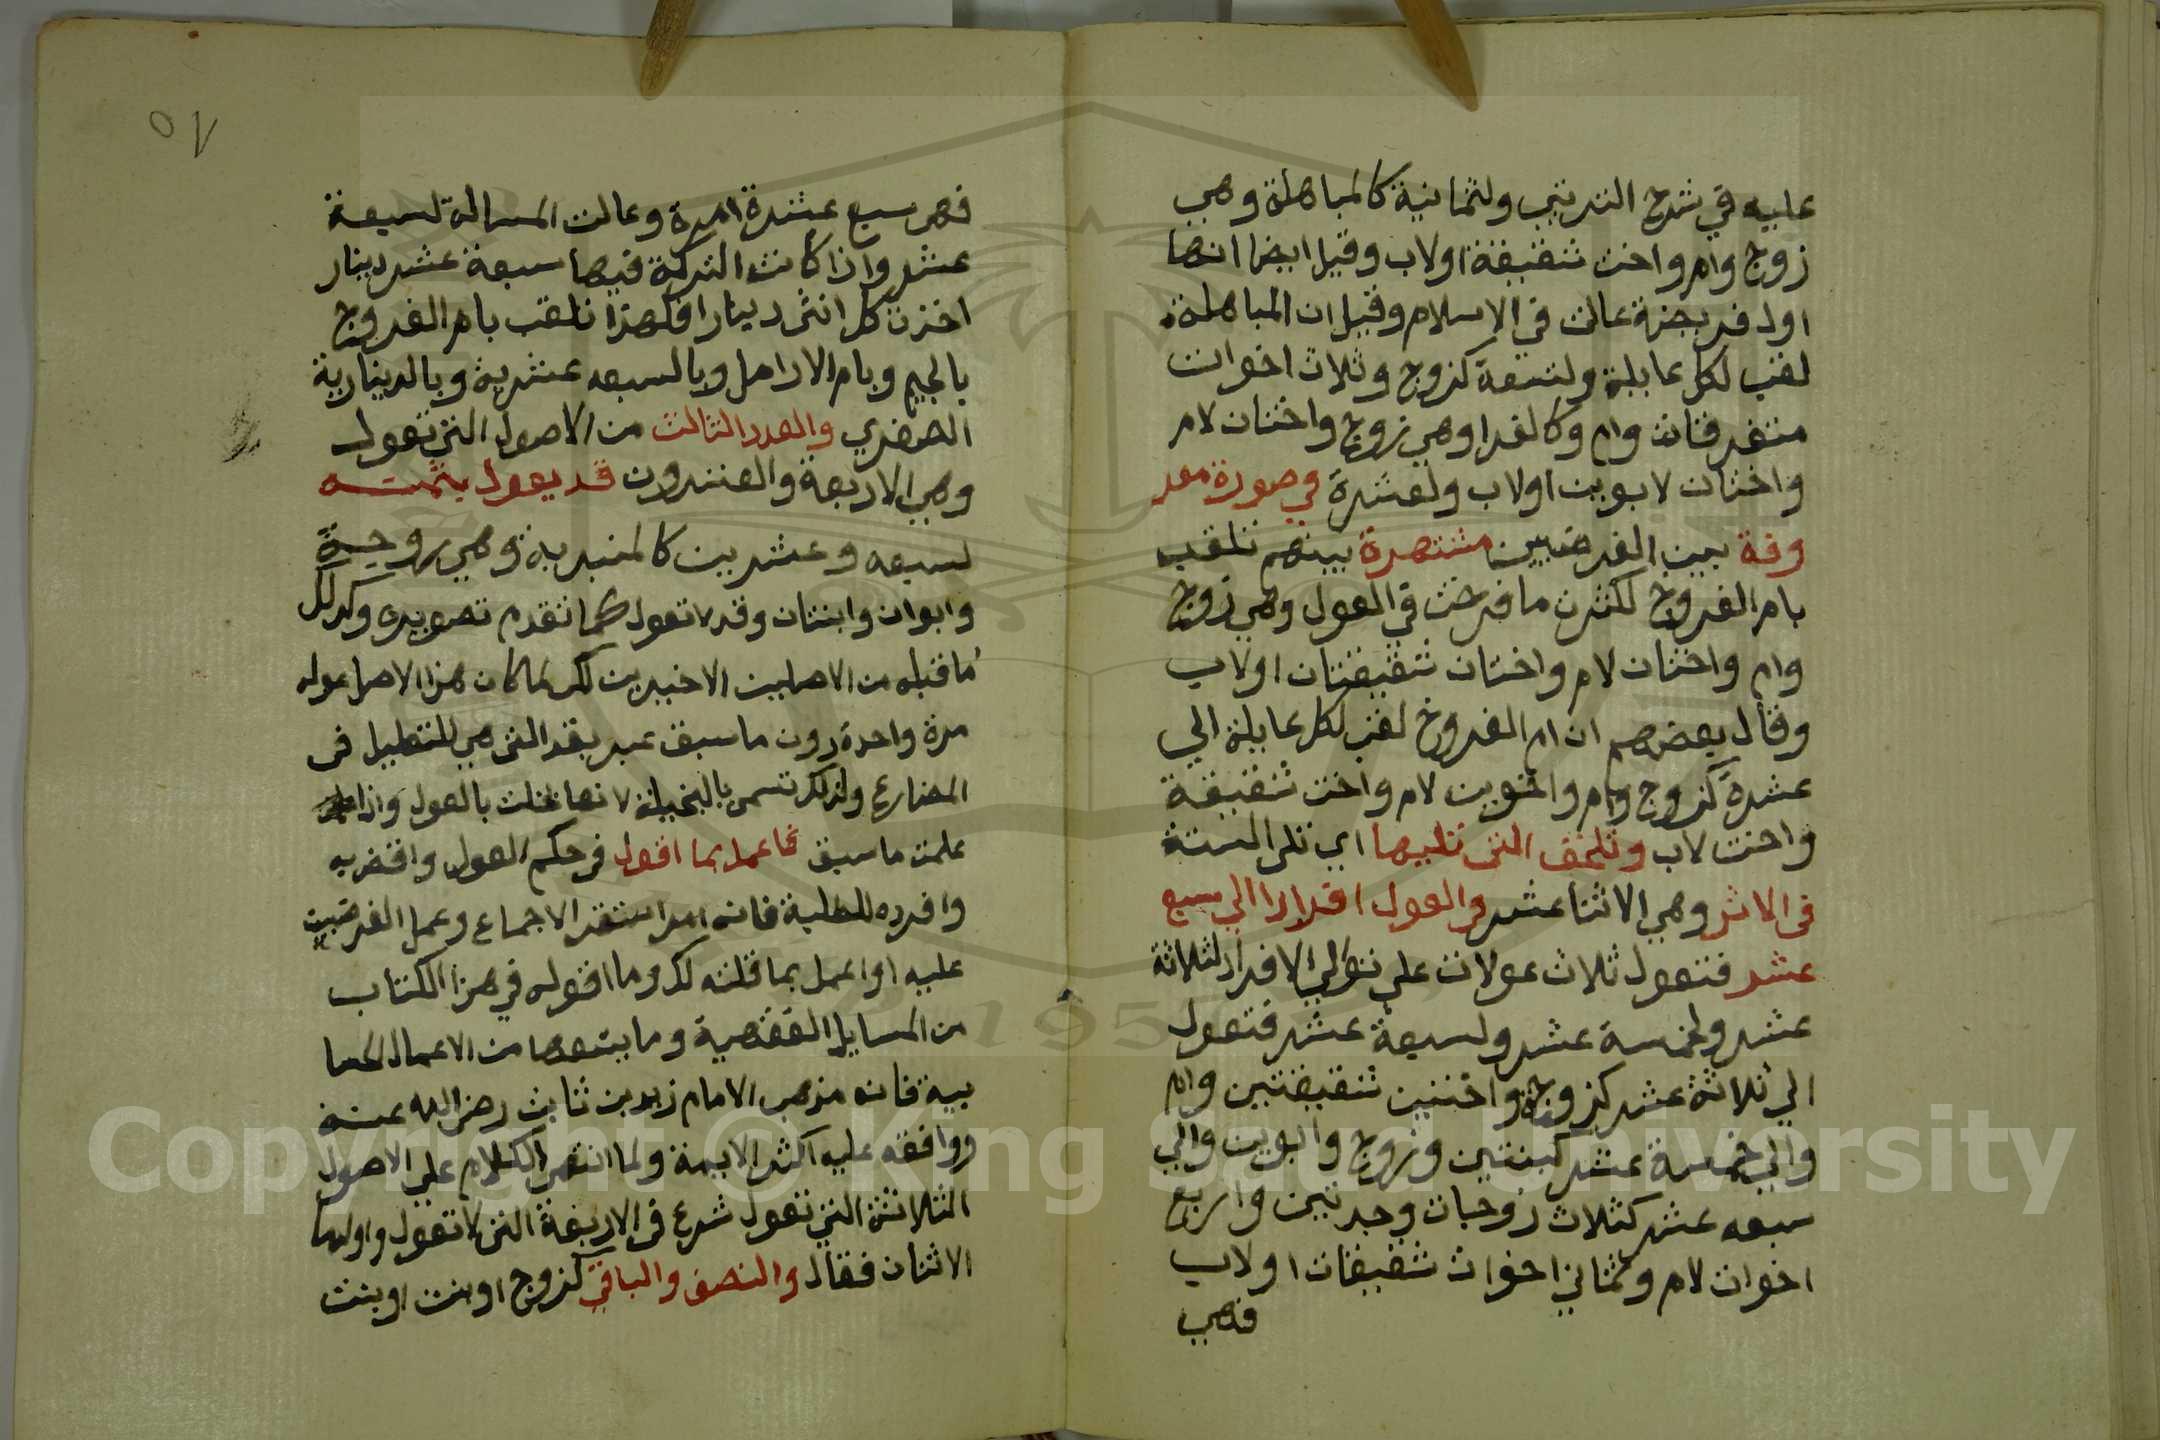 عليه في شرح الترتيب ولثمانية كالمباهلة وهي
زوج وام واخت شقيقة اولاب وقيل ايضا انها
اول فريضة عالت في الاسلام وقيل ان المباهلة
لقب لكل عايلة ولتسعة كزوج وثلاث اخوات
متفرقات وام وكالغرا وهي زوج واختان لام
واختان لابوين اولاب ولعشرة في صورة معر
وفة بين الفرضيين مشتهرة بينهم تلقب
بام الفروخ لكثرت ما فرخت في العول وهي زوج
وام واختان لام واختان شقيقتان اولاب
وقال بعضهم ان ام الفروخ لقب لكل عايلة الي
عشرة كزوج وام واخوين لام واخت شقيقة
واخت لاب وتلحق التي تليها اي تلي الستة
في الاثر وهي الاثنا عشر في العول افرادا الي سبع
عشر فتعول ثلاث عولات علي توالي الافراد لثلاثة
عشر ولخمسة عشر ولسبعة عشر فتعول
الي ثلاثة عشر كزوجة واختين شقيقتين وام
والي خمسة عشر كبنتين وزوج وابوين والي
سبعه عشر كثلاث زوجات وجدتين واربع
اخوات لام وثماني اخوات شقيقات اولاب
فهي
٥٧
فهي سبع عشرة امرة وعالت المسالة لسبعة
عشر واذا كانت التركة فيها سبعة عشر دينار
اخذت كل انثى دينارا فلهذا تلقب بام الفروج
بالجيم وبام الارامل وبالسبعه عشرية وبالدينارية
الصغري والعدد الثالث من الاصول التي تعول
وهي الاربعة والعشرون قد يعول بثمنه
لسبعه وعشرين كالمنبرية وهي زوجة
وابوان وابنتان وقد لا تعول كما تقدم تصويره وكذلك
ما قبله من الاصلين الاخيرين لكن لما كان هذا الاصل عوله
مرة واحدة دون ما سبق عبر بقد التي هي للتقليل في
المضارع ولذلك تسمى بالبخيلة لانها بخلت بالعول واذا
علمت ما سبق فاعمل بما اقول في حكم العول واقض به
وافرده للطلبة فانه امر استقر الاجماع وعمل الفرضيين
عليه او اعمل بما قلته لك وما اقوله في هذا الكتاب
من المسايل الفقهية وما يتبعها من الاعمال الحسا
بية فانه مذهب الامام زيد بن ثابت رضي الله عنه
ووافقه عليه اكثر الايمة ولما انتهى الكلام علي الاصول
الثلاثة التي تعول شرع في الاربعة التي لا تعول واولها
الاثنان فقال والنصف والباقي كزوج او بنت او بنت
Copyright © King Saud University
195